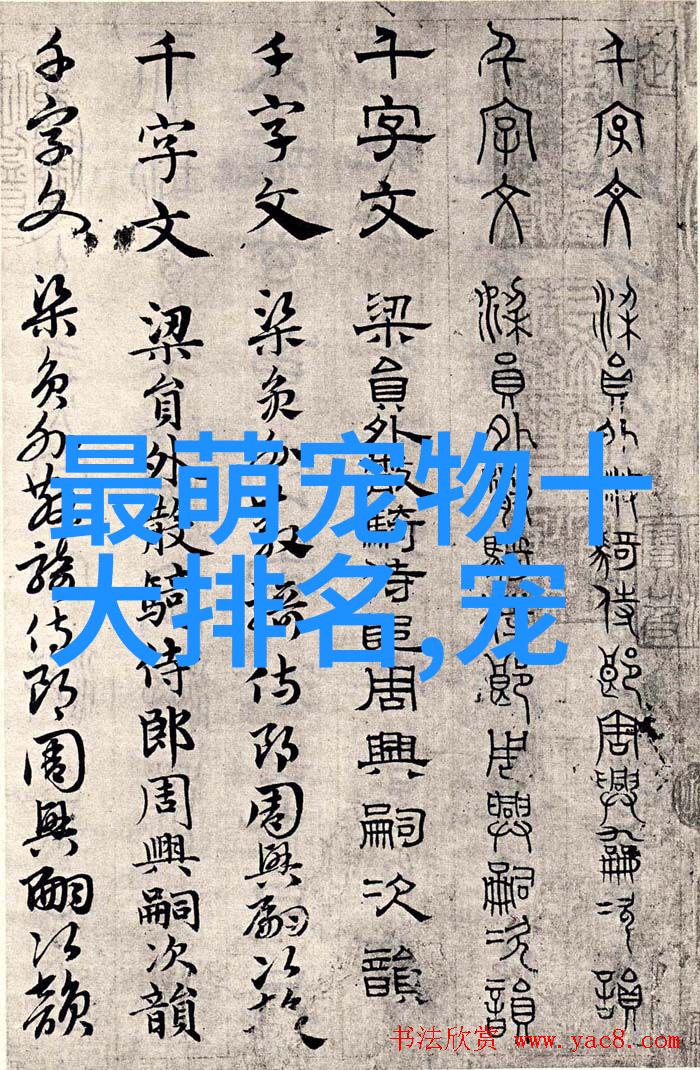 最萌宠物十
大排名,宠
千字文 梁員外散騎侍郎周興嗣次韻
千字文 梁員外散騎侍郎周興嗣次韻
千字文 梁員外散騎侍郎周興嗣次韻
千字文 梁員外散騎侍郎周興嗣次韻
千字文 梁員外散騎侍郎周興嗣次韻
千字文 梁員外散騎侍郎周興嗣次韻
书法欣赏 www.yac8.com